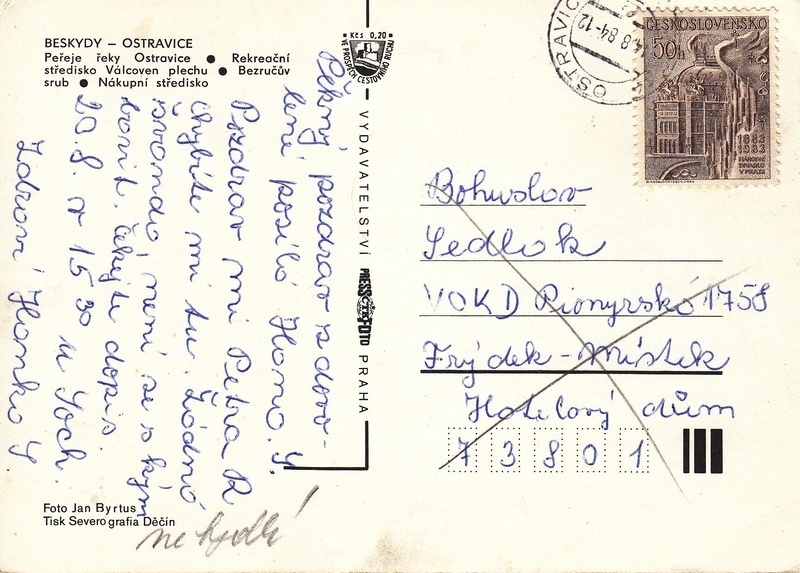 BESKYDY – OSTRAVICE
Peřeje řeky Ostravice ● Rekreační
středisko Válcoven plechu ● Bezručův
srub ● Nákupní středisko
Pěkný pozdrav z dovo-
lené posílá Hana. Y.
Pozdrav mi Petra R
Chybíte mi tu. Žádná
sranda, není se s kým
bavit. Čekejte dopis.
20.8. v 15 30 u Soch.
Zdraví Hanka Y
Foto Jan Byrtus
Tisk Severografia Děčín
nebydlí!
Kčs 0,20
VE PROSPĚCH CESTOVNÍHO RUCHU
VYDAVATELSTVÍ PRESSFOTO PRAHA
ČTK
OSTRAVIC
8.84-12
ČESKOSLOVENSKO
50h
1883
1983
NÁRODNÍ
DIVADLO
V PRAZE
Bohuslav
Sedlak
VOKD Pionýrská 1758
Frýdek-Místek
Hotelový dům
7 3 8 0 1